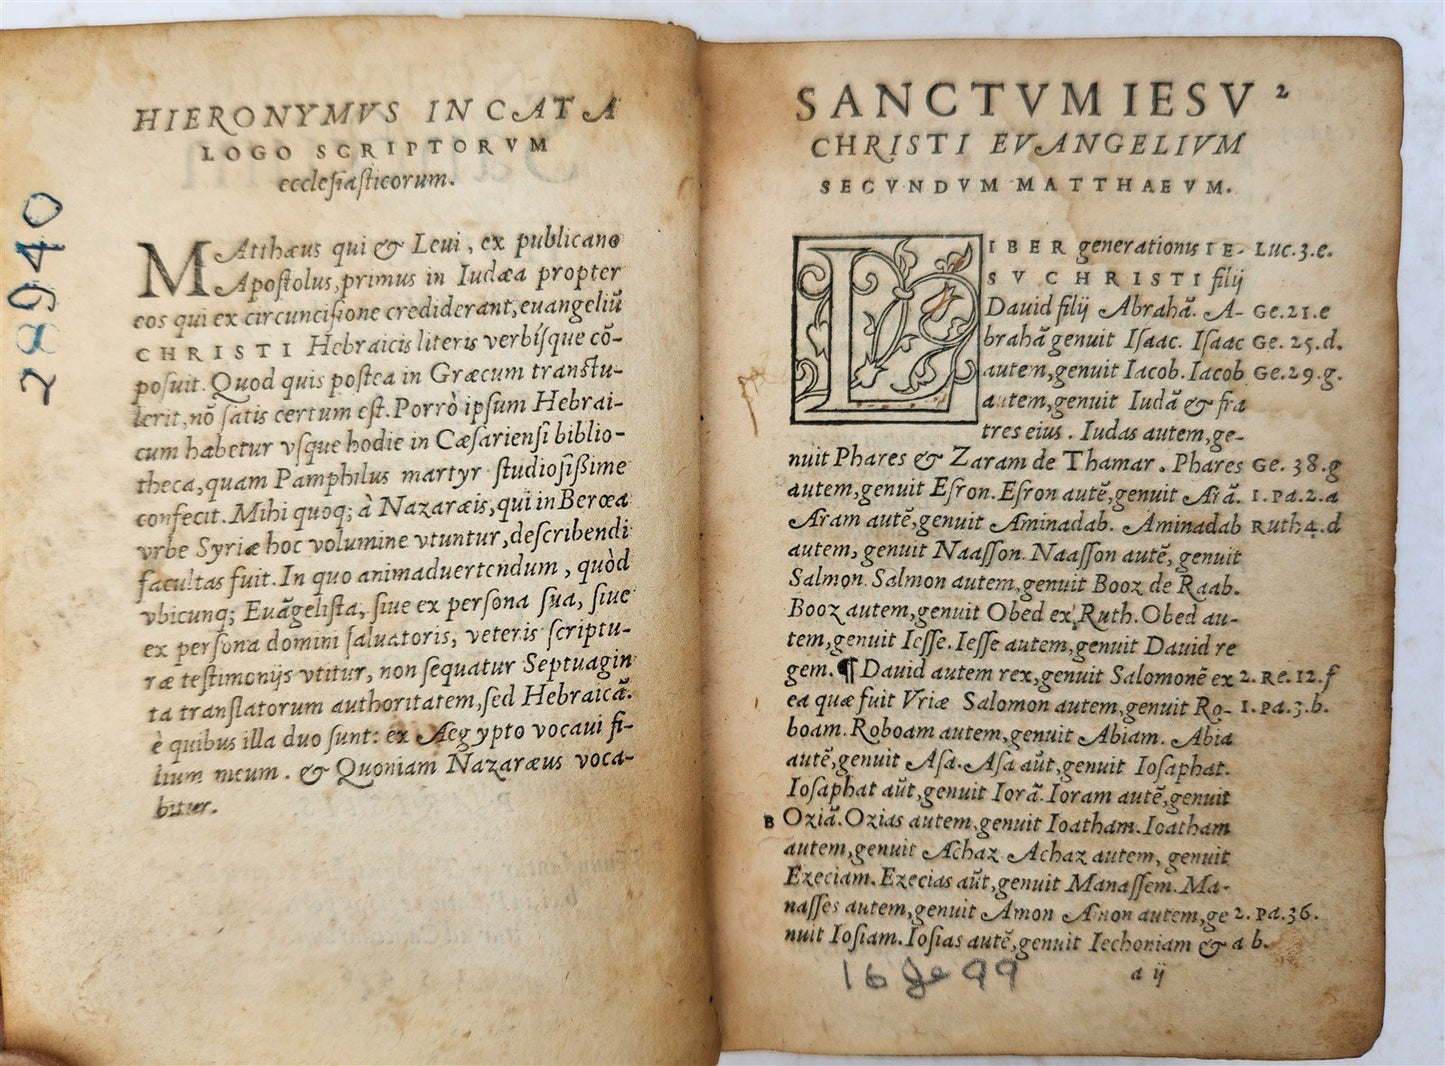 HIERONYMVS IN CATA
LOGO SCRIPTORVM
ecclesiasticorum.
MAtthæus qui & Leui, ex publicano
Apostolus, primus in Iudæa propter
eos qui ex circuncisione crediderant, euangeliũ
CHRISTI Hebraicis literis verbísque cõ-
posuit. Quod quis postea in Græcum transtu-
lerit, nõ satis certum est. Porrò ipsum Hebrai-
cum habetur vsque hodie in Cæsariensi biblio-
theca, quam Pamphilus martyr studiosißime
confecit. Mihi quoq; à Nazaræis, qui in Berœa
vrbe Syriæ hoc volumine vtuntur, describendi
facultas fuit. In quo animaduertendum, quòd
vbicunq; Euãgelista, siue ex persona sua, siue
ex persona domini saluatoris, veteris scriptu-
ræ testimonijs vtitur, non sequatur Septuagin
ta translatorum authoritatem, sed Hebraicã.
è quibus illa duo sunt: ex Aegypto vocaui fi-
lium meum. & Quoniam Nazaræus voca-
bitur.
28940
SANCTVM IESV 2
CHRISTI EVANGELIVM
SECVNDVM MATTHAEVM.
LIBER generationis IE- Luc.3.e.
SV CHRISTI filij
Dauid filij Abrahã. A- Ge.21.e
brahã genuit Isaac. Isaac Ge.25.d.
autem, genuit Iacob. Iacob Ge.29.g.
autem, genuit Iudã & fra
tres eius. Iudas autem, ge-
nuit Phares & Zaram de Thamar. Phares Ge.38.g
autem, genuit Esron. Esron autẽ, genuit Arã. 1.Pa.2.a
Aram autẽ, genuit Aminadab. Aminadab Ruth 4.d
autem, genuit Naasson. Naasson autẽ, genuit
Salmon. Salmon autem, genuit Booz de Raab.
Booz autem, genuit Obed ex Ruth. Obed au-
tem, genuit Iesse. Iesse autem, genuit Dauid re
gem. ¶ Dauid autem rex, genuit Salomonẽ ex 2.Re.12.f
ea quæ fuit Vriæ Salomon autem, genuit Ro- 1.Pa.3.b.
boam. Roboam autem, genuit Abiam. Abia
autẽ, genuit Asa. Asa aũt, genuit Iosaphat.
Iosaphat aũt, genuit Iorã. Ioram autẽ, genuit
B Oziã. Ozias autem, genuit Ioatham. Ioatham
autem, genuit Achaz Achaz autem, genuit
Ezeciam. Ezecias aũt, genuit Manassem. Ma-
nasses autem, genuit Amon Amon autem, ge 2.Pa.36.
nuit Iosiam. Iosias autẽ, genuit Iechoniam & a b.
a ij